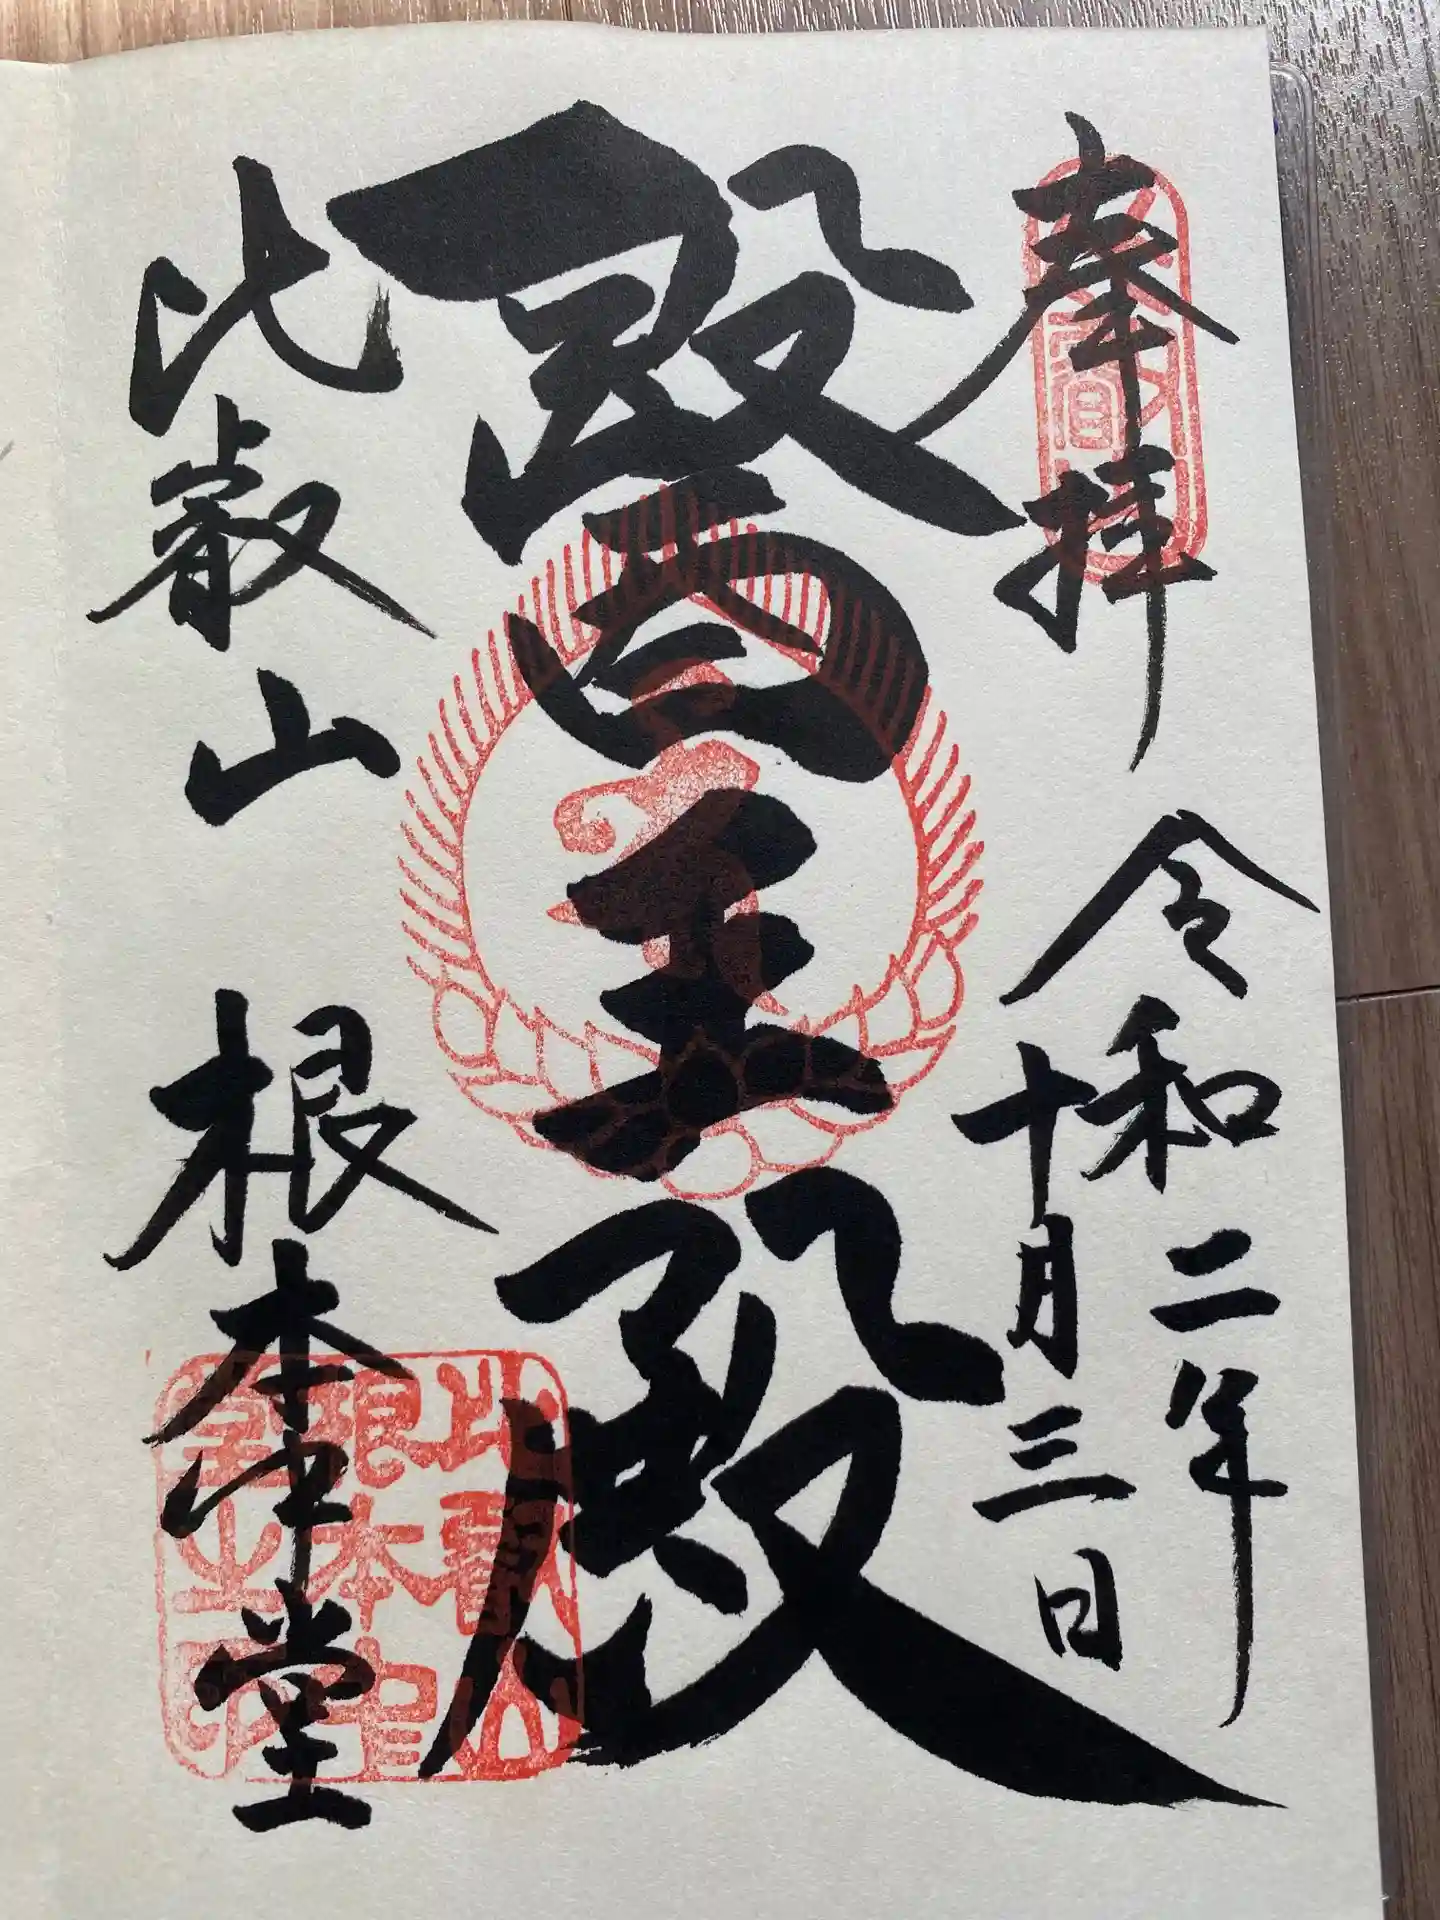 奉拝
令和二年
十月三日
醫王殿
比叡山
根本中堂
比叡山
根本中
堂之印